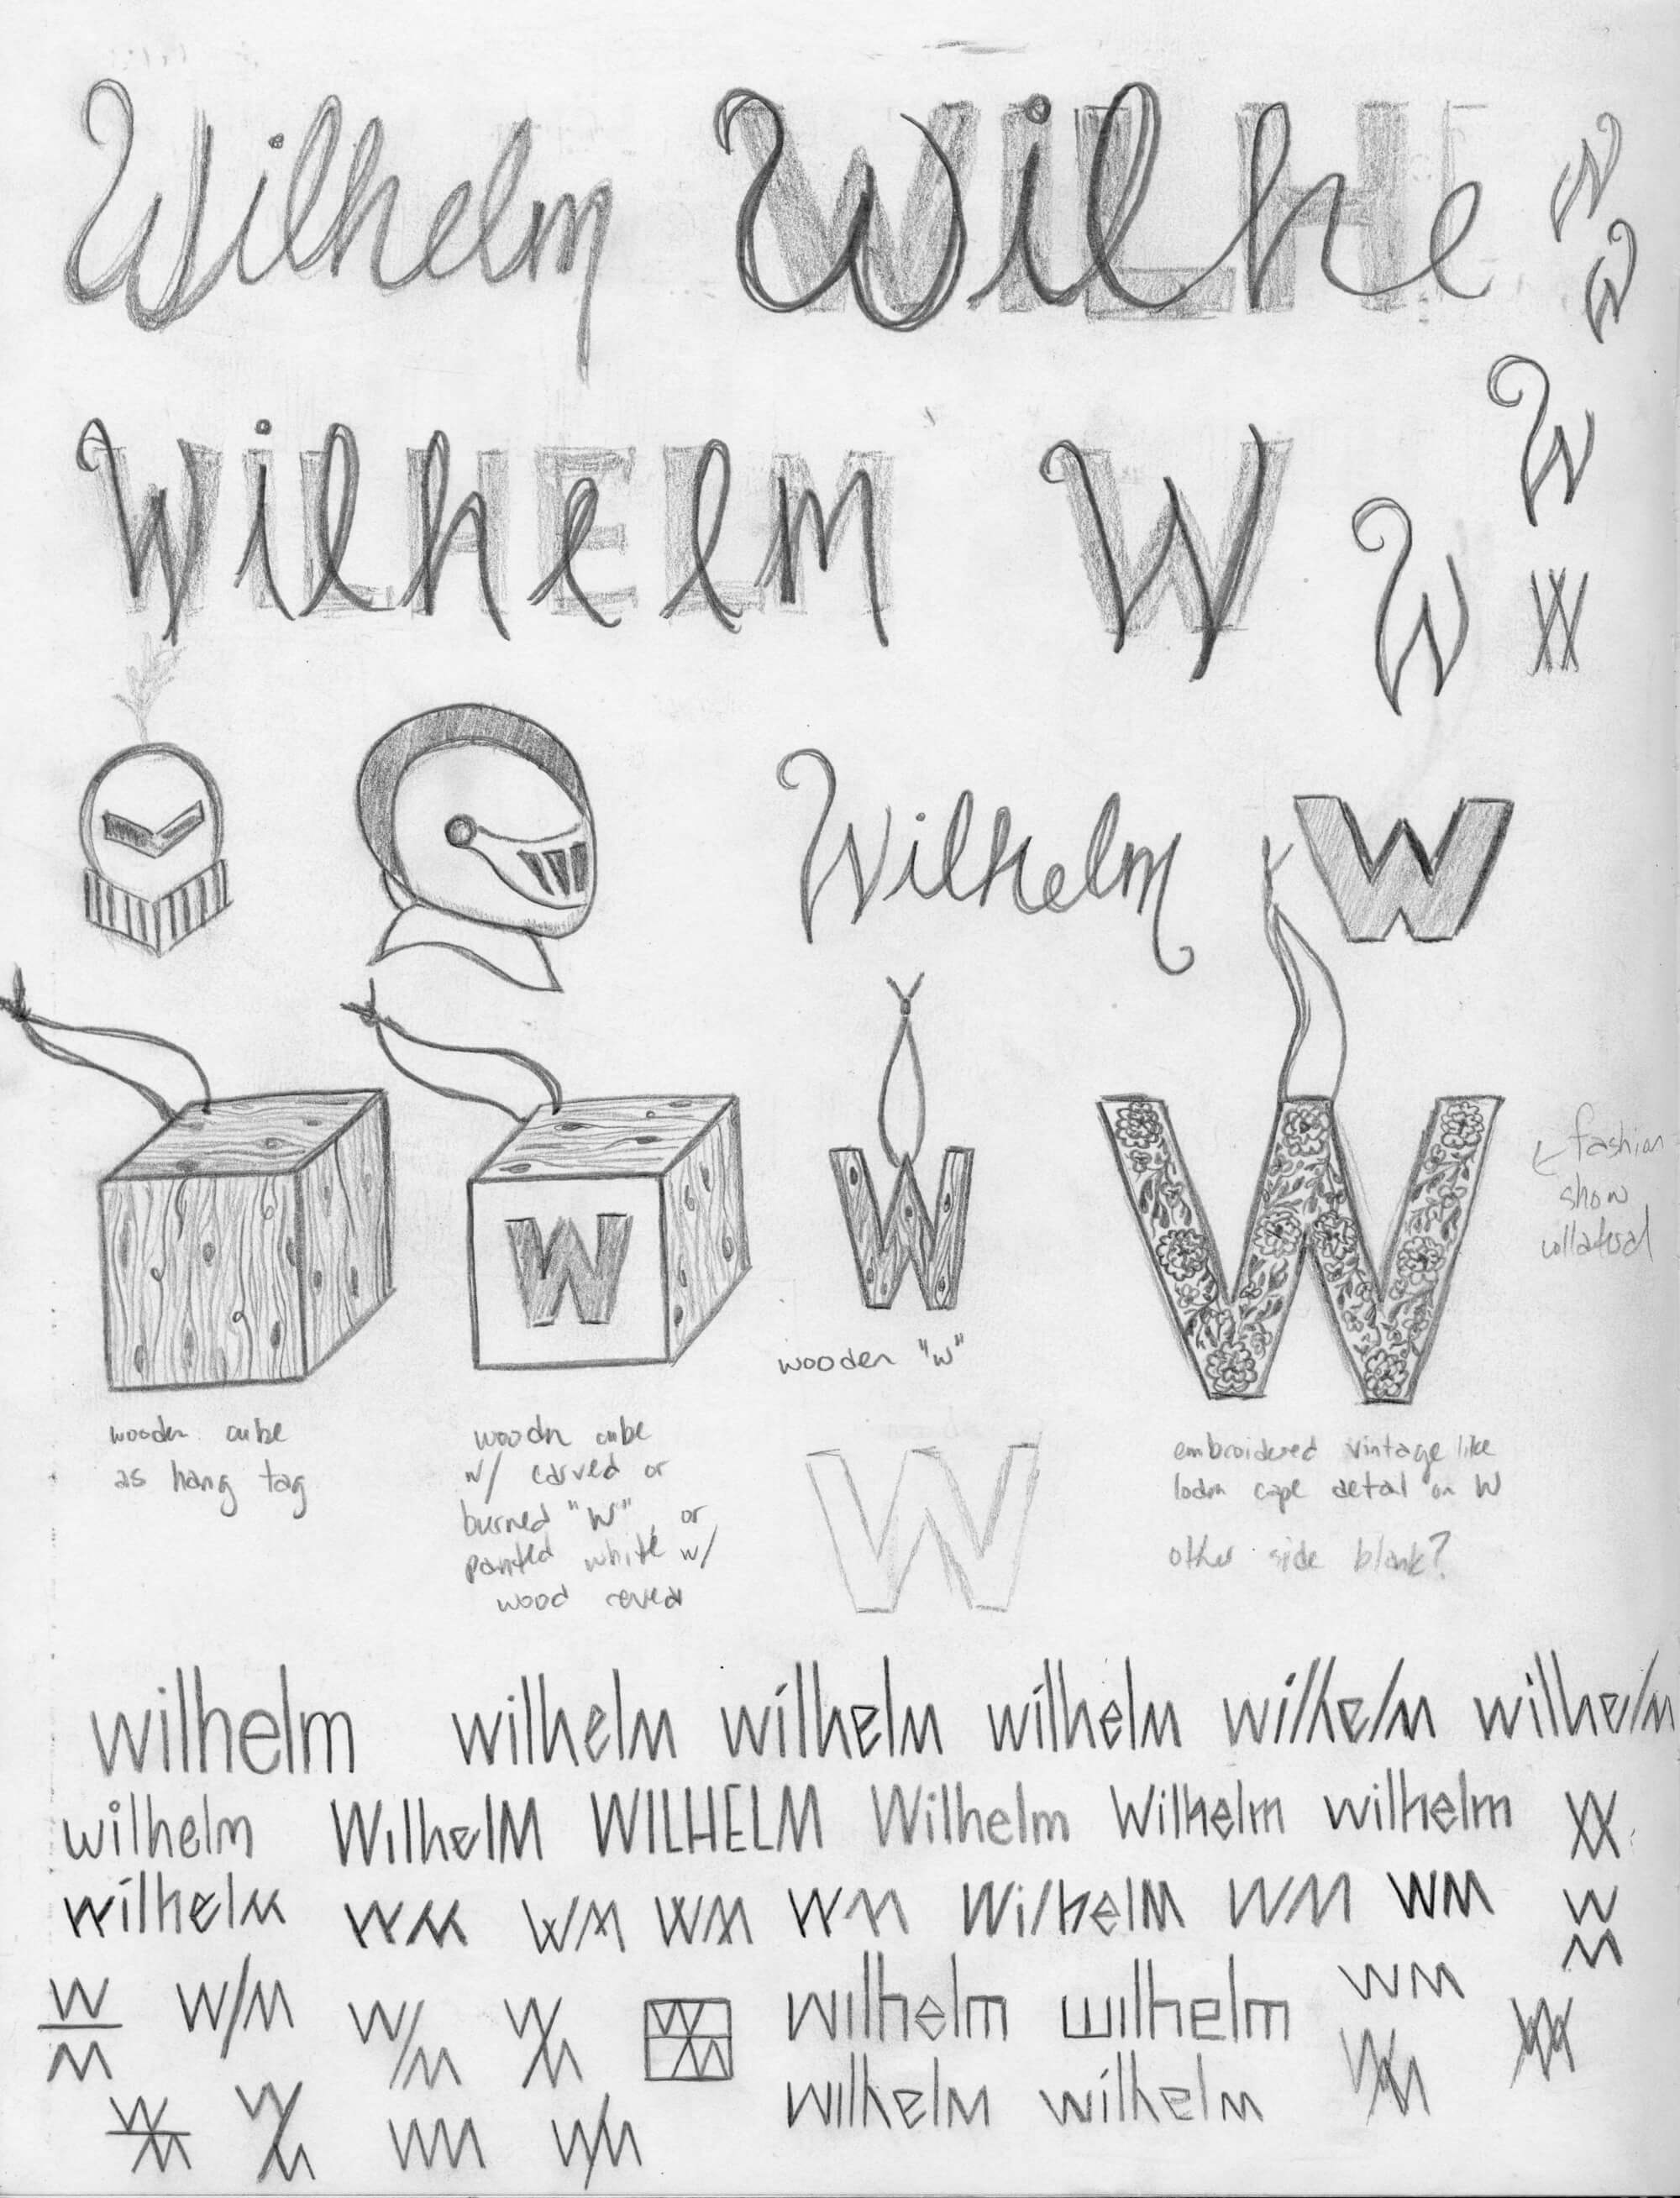 Wilhelm Wilhe
WILHE
Wilhelm W W
WILHELM W W
W
W
W
Wilhelm W
W W W
fashion
show
collateral
wooden "W"
wooden cube
as hang tag
woodn cube
w/ carved or
burned "W", or
painted white w/
wood reveal
W
embroidered vintage like
loden cape detail on W
other side blank?
wilhelm wilhelm wilhelm wilhelm wilhelm wilhelm
wilhelm WilhelM WILHELM Wilhelm Wilhelm wilhelm
wilhelm WM WM WM WM WilhelM WM WM W
M
W W/M W/M W/M WM wilhelm wilhelm WM
M
WM WM WM W/M wilhelm wilhelm WM